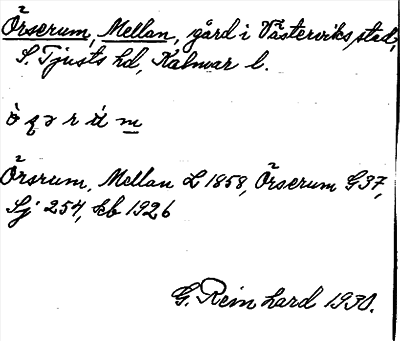 Örserum, Mellan, gård i Västerviks stad,
S. Tjusts hd, Kalmar l.
Örsrum, Mellan L 1858, Örserum G37,
Sj 254, kb 1926
G. Reinhard 1930.